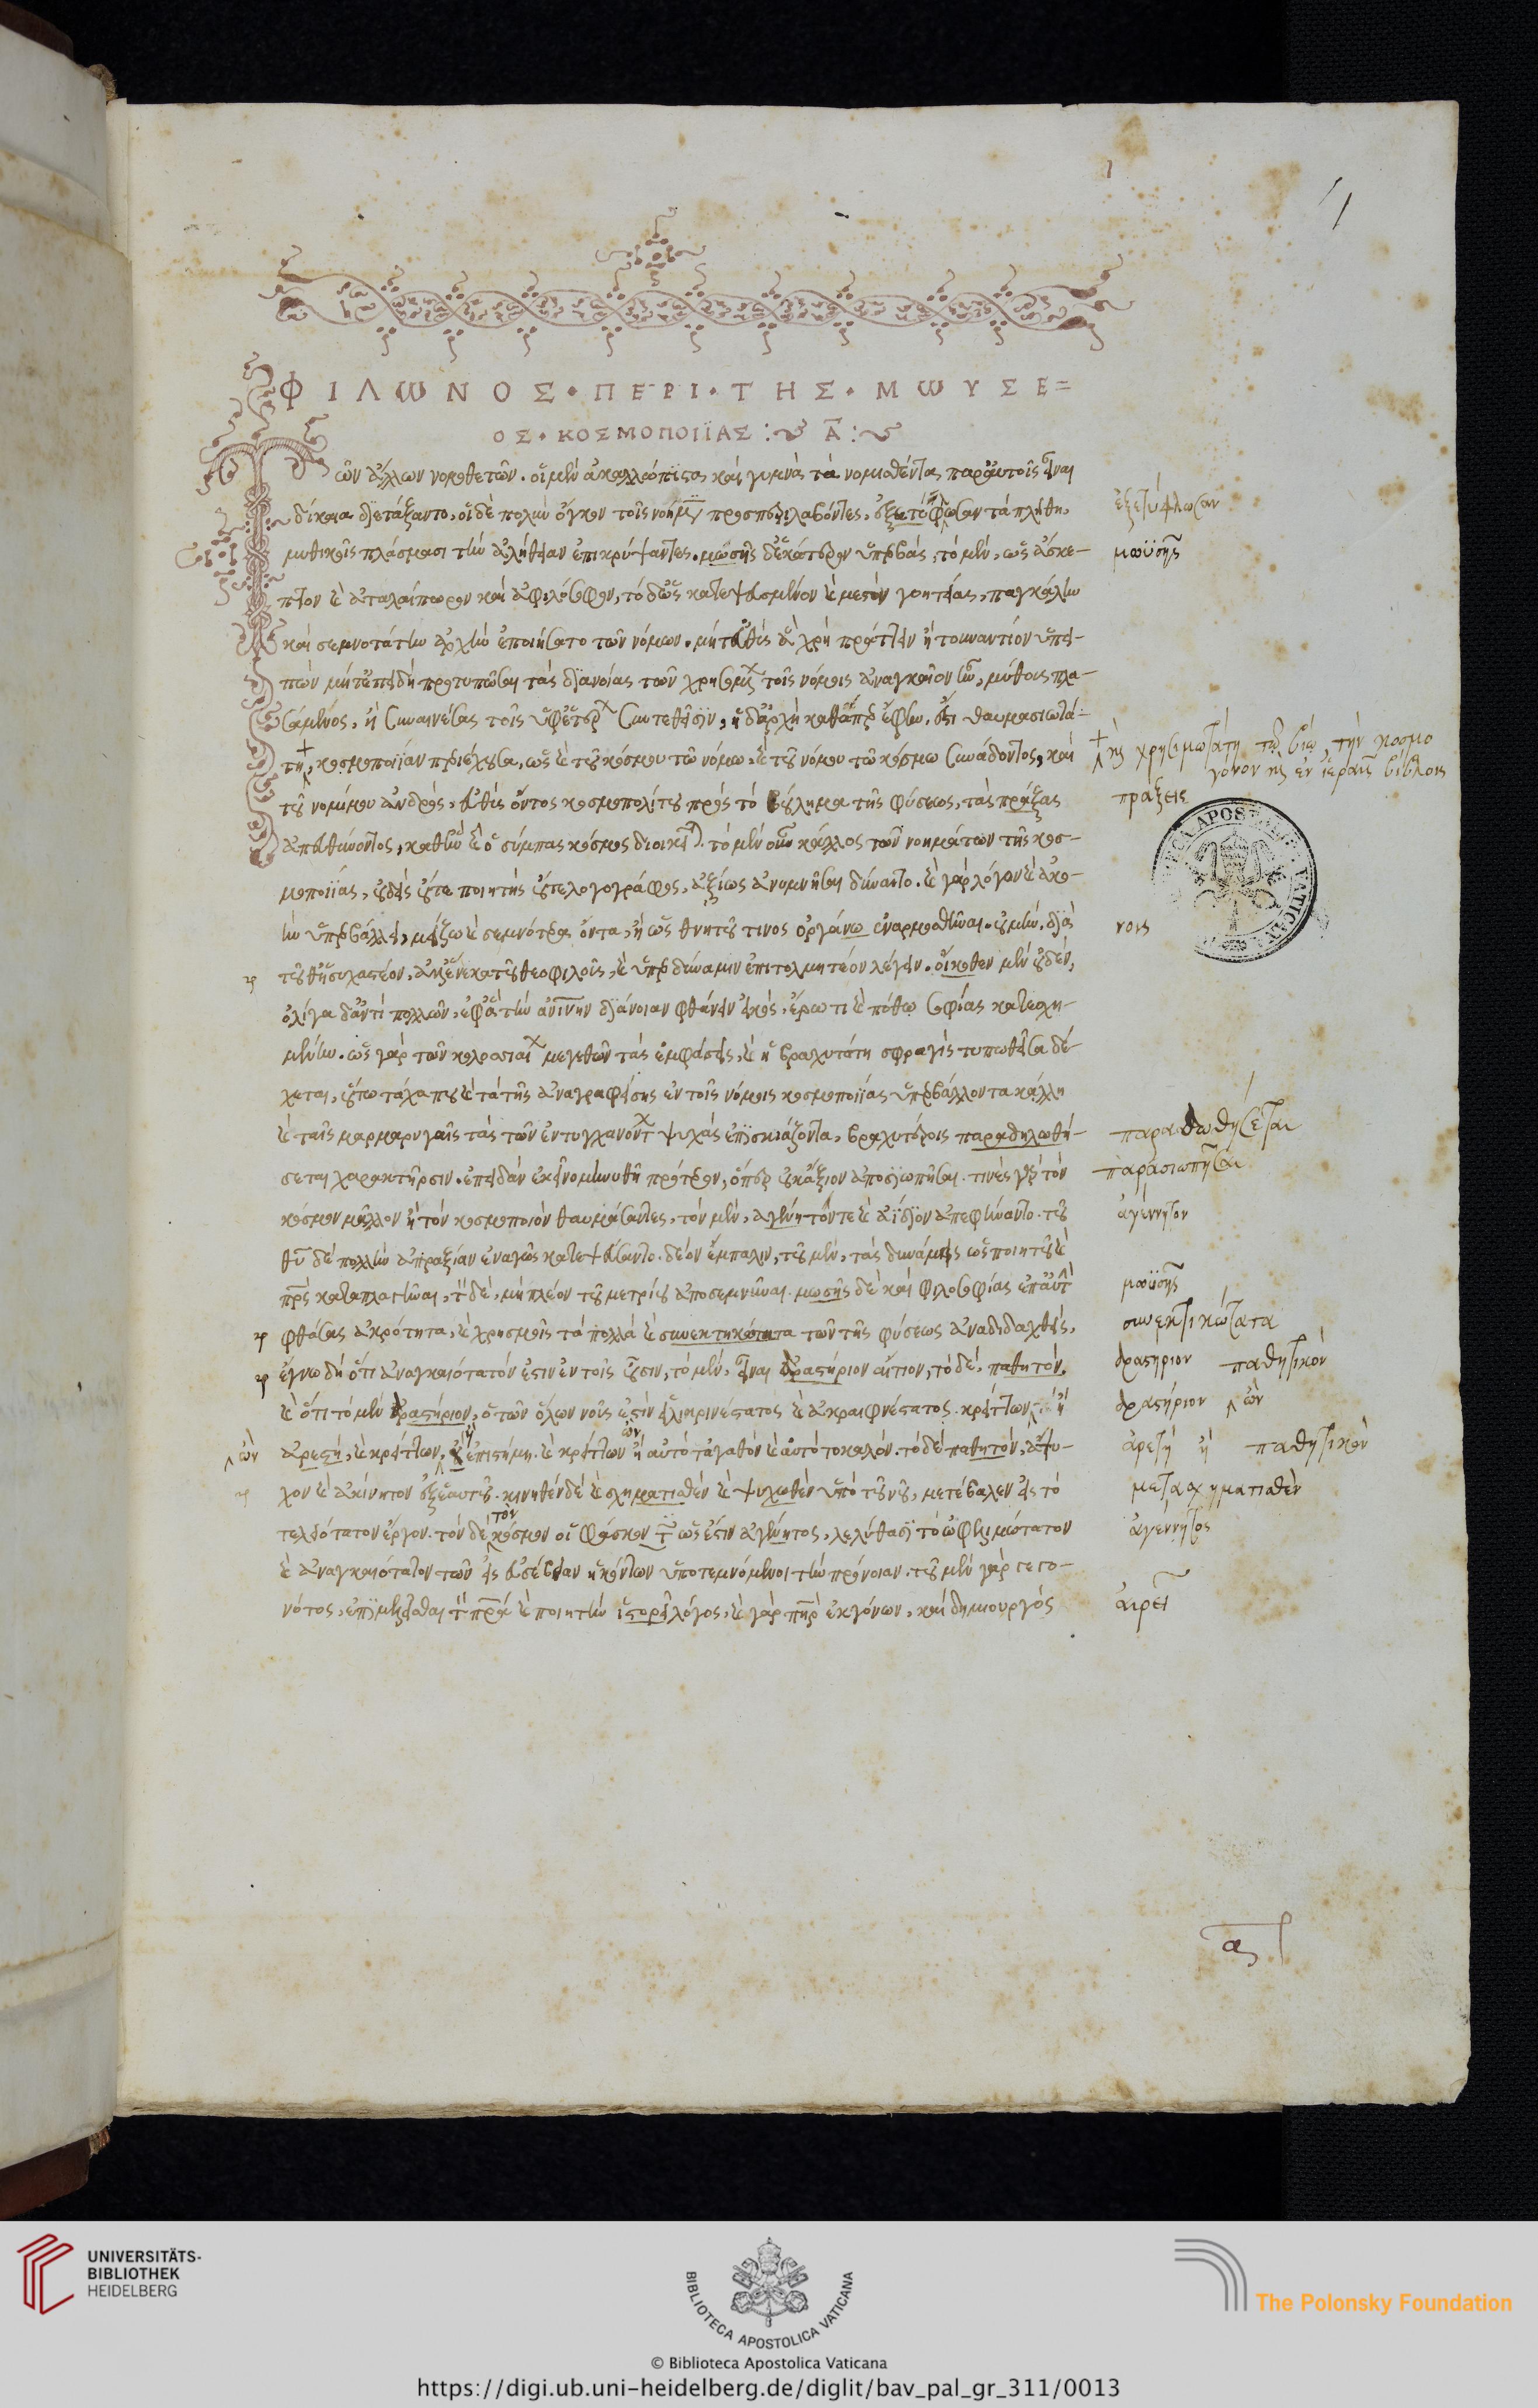 ΦΙΛΩΝΟΣ·ΠΕΡΙ·ΤΗΣ·ΜΩΥΣΕ=
ΟΣ·ΚΟΣΜΟΠΟΙΪΑΣ : Α :
Τῶν ἄλλων νομοθετῶν. οἱ μὲν ἀκαλλώπιστα καὶ γυμνὰ τὰ νομισθέντα παρ' αὐτοῖς εἶναι
δίκαια διετάξαντο, οἱ δὲ πολὺν ὄγκον τοῖς νοήμασι προσπεριλαβόντες, ἐξετύφωσαν τὰ πλήθη,
μυθικοῖς πλάσμασι τὴν ἀλήθειαν ἐπικρύψαντες. μωσῆς δ' ἑκάτερον ὑπερβὰς, τὸ μὲν, ὡς ἄσκε-
πτον καὶ ἀταλαίπωρον καὶ ἀφιλόσοφον, τὸ δ' ὡς κατεψευσμένον καὶ μεστὸν γοητείας, παγκάλην
καὶ σεμνοτάτην ἀρχὴν ἐποιήσατο τῶν νόμων. μήτ' εὐθὺς ἃ χρὴ πράττειν ἢ τοὐναντίον ὑπει-
πὼν μήτ' ἐπειδὴ προτυπῶσαι τὰς διανοίας τῶν χρησομένων τοῖς νόμοις ἀναγκαῖον ἦν, μύθους πλα-
σάμενος, ἢ συναινέσας τοῖς ὑφ' ἑτέρων συντεθεῖσιν, ἡ δ' ἀρχὴ καθάπερ ἔφην, ἐστὶ θαυμασιωτά-
τη, κοσμοποιΐαν περιέχουσα, ὡς καὶ τοῦ κόσμου τῷ νόμῳ, καὶ τοῦ νόμου τῷ κόσμῳ συνᾴδοντος, καὶ
τοῦ νομίμου ἀνδρὸς, εὐθὺς ὄντος κοσμοπολίτου πρὸς τὸ βούλημα τῆς φύσεως, τὰς πράξας
ἀπευθύνοντος, καθ' ἣν καὶ ὁ σύμπας κόσμος διοικεῖται. τὸ μὲν οὖν κάλλος τῶν νοημάτων τῆς κοσ-
μοποιΐας, οὐδεὶς οὔτε ποιητὴς οὔτε λογογράφος, ἀξίως ἀνυμνῆσαι δύναιτο. καὶ γὰρ λόγον καὶ ἀκο-
ὴν ὑπερβάλλει, μείζω καὶ σεμνότερα ὄντα, ἢ ὡς θνητοῦ τινος ὀργάνῳ ἐναρμοσθῆναι. οὐ μὴν, διὰ
τοῦθ' ἡσυχαστέον, ἀλλ' ἕνεκα τοῦ θεοφιλοῦς, καὶ ὑπὲρ δύναμιν ἐπιτολμητέον λέγειν. οἴκοθεν μὲν οὐδὲν,
ὀλίγα δ' ἀντὶ πολλῶν, ἐφ' ἃ τὴν ἀνθρωπίνην διάνοιαν φθάνειν εἰκὸς, ἔρωτι καὶ πόθῳ σοφίας κατεσχη-
μένην. ὡς γὰρ τῶν κολοσσιαίων μεγεθῶν τὰς ἐμφάσεις, καὶ ἡ βραχυτάτη σφραγὶς τυπωθεῖσα δέ-
χεται, οὕτω τάχα που καὶ τὰ τῆς ἀναγραφείσης ἐν τοῖς νόμοις κοσμοποιΐας ὑπερβάλλοντα κάλλη
καὶ ταῖς μαρμαρυγαῖς τὰς τῶν ἐντυγχανόντων ψυχὰς ἐπισκιάζοντα, βραχυτέροις παραδηλωθή-
σεται χαρακτῆρσιν. ἐπειδὰν ἐκεῖνο μηνυθῇ πρότερον, ὅπερ οὐκ ἄξιον ἀποσιωπῆσαι. τινὲς γὰρ τὸν
κόσμον μᾶλλον ἢ τὸν κοσμοποιὸν θαυμάσαντες, τὸν μὲν, ἀγένητόν τε καὶ ἀΐδιον ἀπεφήναντο. τοῦ
θυ δὲ πολλὴν ἀπραξίαν ἀνάγνως κατεψεύσαντο. δέον ἔμπαλιν, τοῦ μὲν, τὰς δυνάμεις ὡς ποιητοῦ καὶ
πρς καταπλαγῆναι, τὸν δὲ, μὴ πλέον τοῦ μετρίου ἀποσεμνῦναι. μωσῆς δὲ καὶ φιλοσοφίας ἐπ' αὐτὴν
φθάσας ἀκρότητα, καὶ χρησμοῖς τὰ πολλὰ καὶ συνεκτικώτατα τῶν τῆς φύσεως ἀναδιδαχθεὶς,
ἔγνω δὴ ὅτι ἀναγκαιότατόν ἐστιν ἐν τοῖς οὖσιν, τὸ μὲν, εἶναι δραστήριον αἴτιον, τὸ δὲ, παθητόν,
καὶ ὅτι τὸ μὲν δραστήριον, ὁ τῶν ὅλων νοῦς ἐστὶν εἰλικρινέστατος καὶ ἀκραιφνέστατος. κρείττων ἢ
ἀρετή, καὶ κρείττων, ἢ ἐπιστήμη. καὶ κρείττων ἢ αὐτὸ τἀγαθὸν καὶ αὐτὸ τὸ καλόν. τὸ δὲ παθητὸν, ἄψυ-
χον καὶ ἀκίνητον ἐξ ἑαυτοῦ. κινηθὲν δὲ καὶ σχηματισθὲν καὶ ψυχωθὲν ὑπὸ τοῦ νοῦ, μετέβαλεν εἰς τὸ
τελειότατον ἔργον. τὸν δὲ κόσμον οἱ φάσκοντες ὡς ἔστιν ἀγένητος, λελήθασι τὸ ὠφελιμώτατον
καὶ ἀναγκαιότατον τῶν εἰς εὐσέβειαν ἡκόντων ὑποτεμνόμενοι τὴν πρόνοιαν. τοῦ μὲν γὰρ γεγο-
νότος, ἐπιμελεῖσθαι τὸν πρα καὶ ποιητὴν ἱστορεῖ λόγος, καὶ γὰρ πηρ ἐκγόνων, καὶ δημιουργὸς
ἐξετύφλωσαν
μωϋσῆς
ης χρησιμωτάτη τῷ βίῳ, τὴν κοσμο
γόνον ης ἐν ἱεραῖς βίβλοις
πράξεις
νοις
παραδωθήσεται
παρασιωπῆσαι
ἀγέννητον
μωϋσῆς
συνεκτικώτατα
δραστήριον παθητικὸν
δραστήριον ὢν
ὢν
ἀρετὴ ἢ παθητικὸν
μετασχηματισθὲν
ἀγέννητος
αἱρεῖ
UNIVERSITÄTS-
BIBLIOTHEK
HEIDELBERG
BIBLIOTECA APOSTOLICA VATICANA
The Polonsky Foundation
© Biblioteca Apostolica Vaticana
https://digi.ub.uni-heidelberg.de/diglit/bav_pal_gr_311/0013